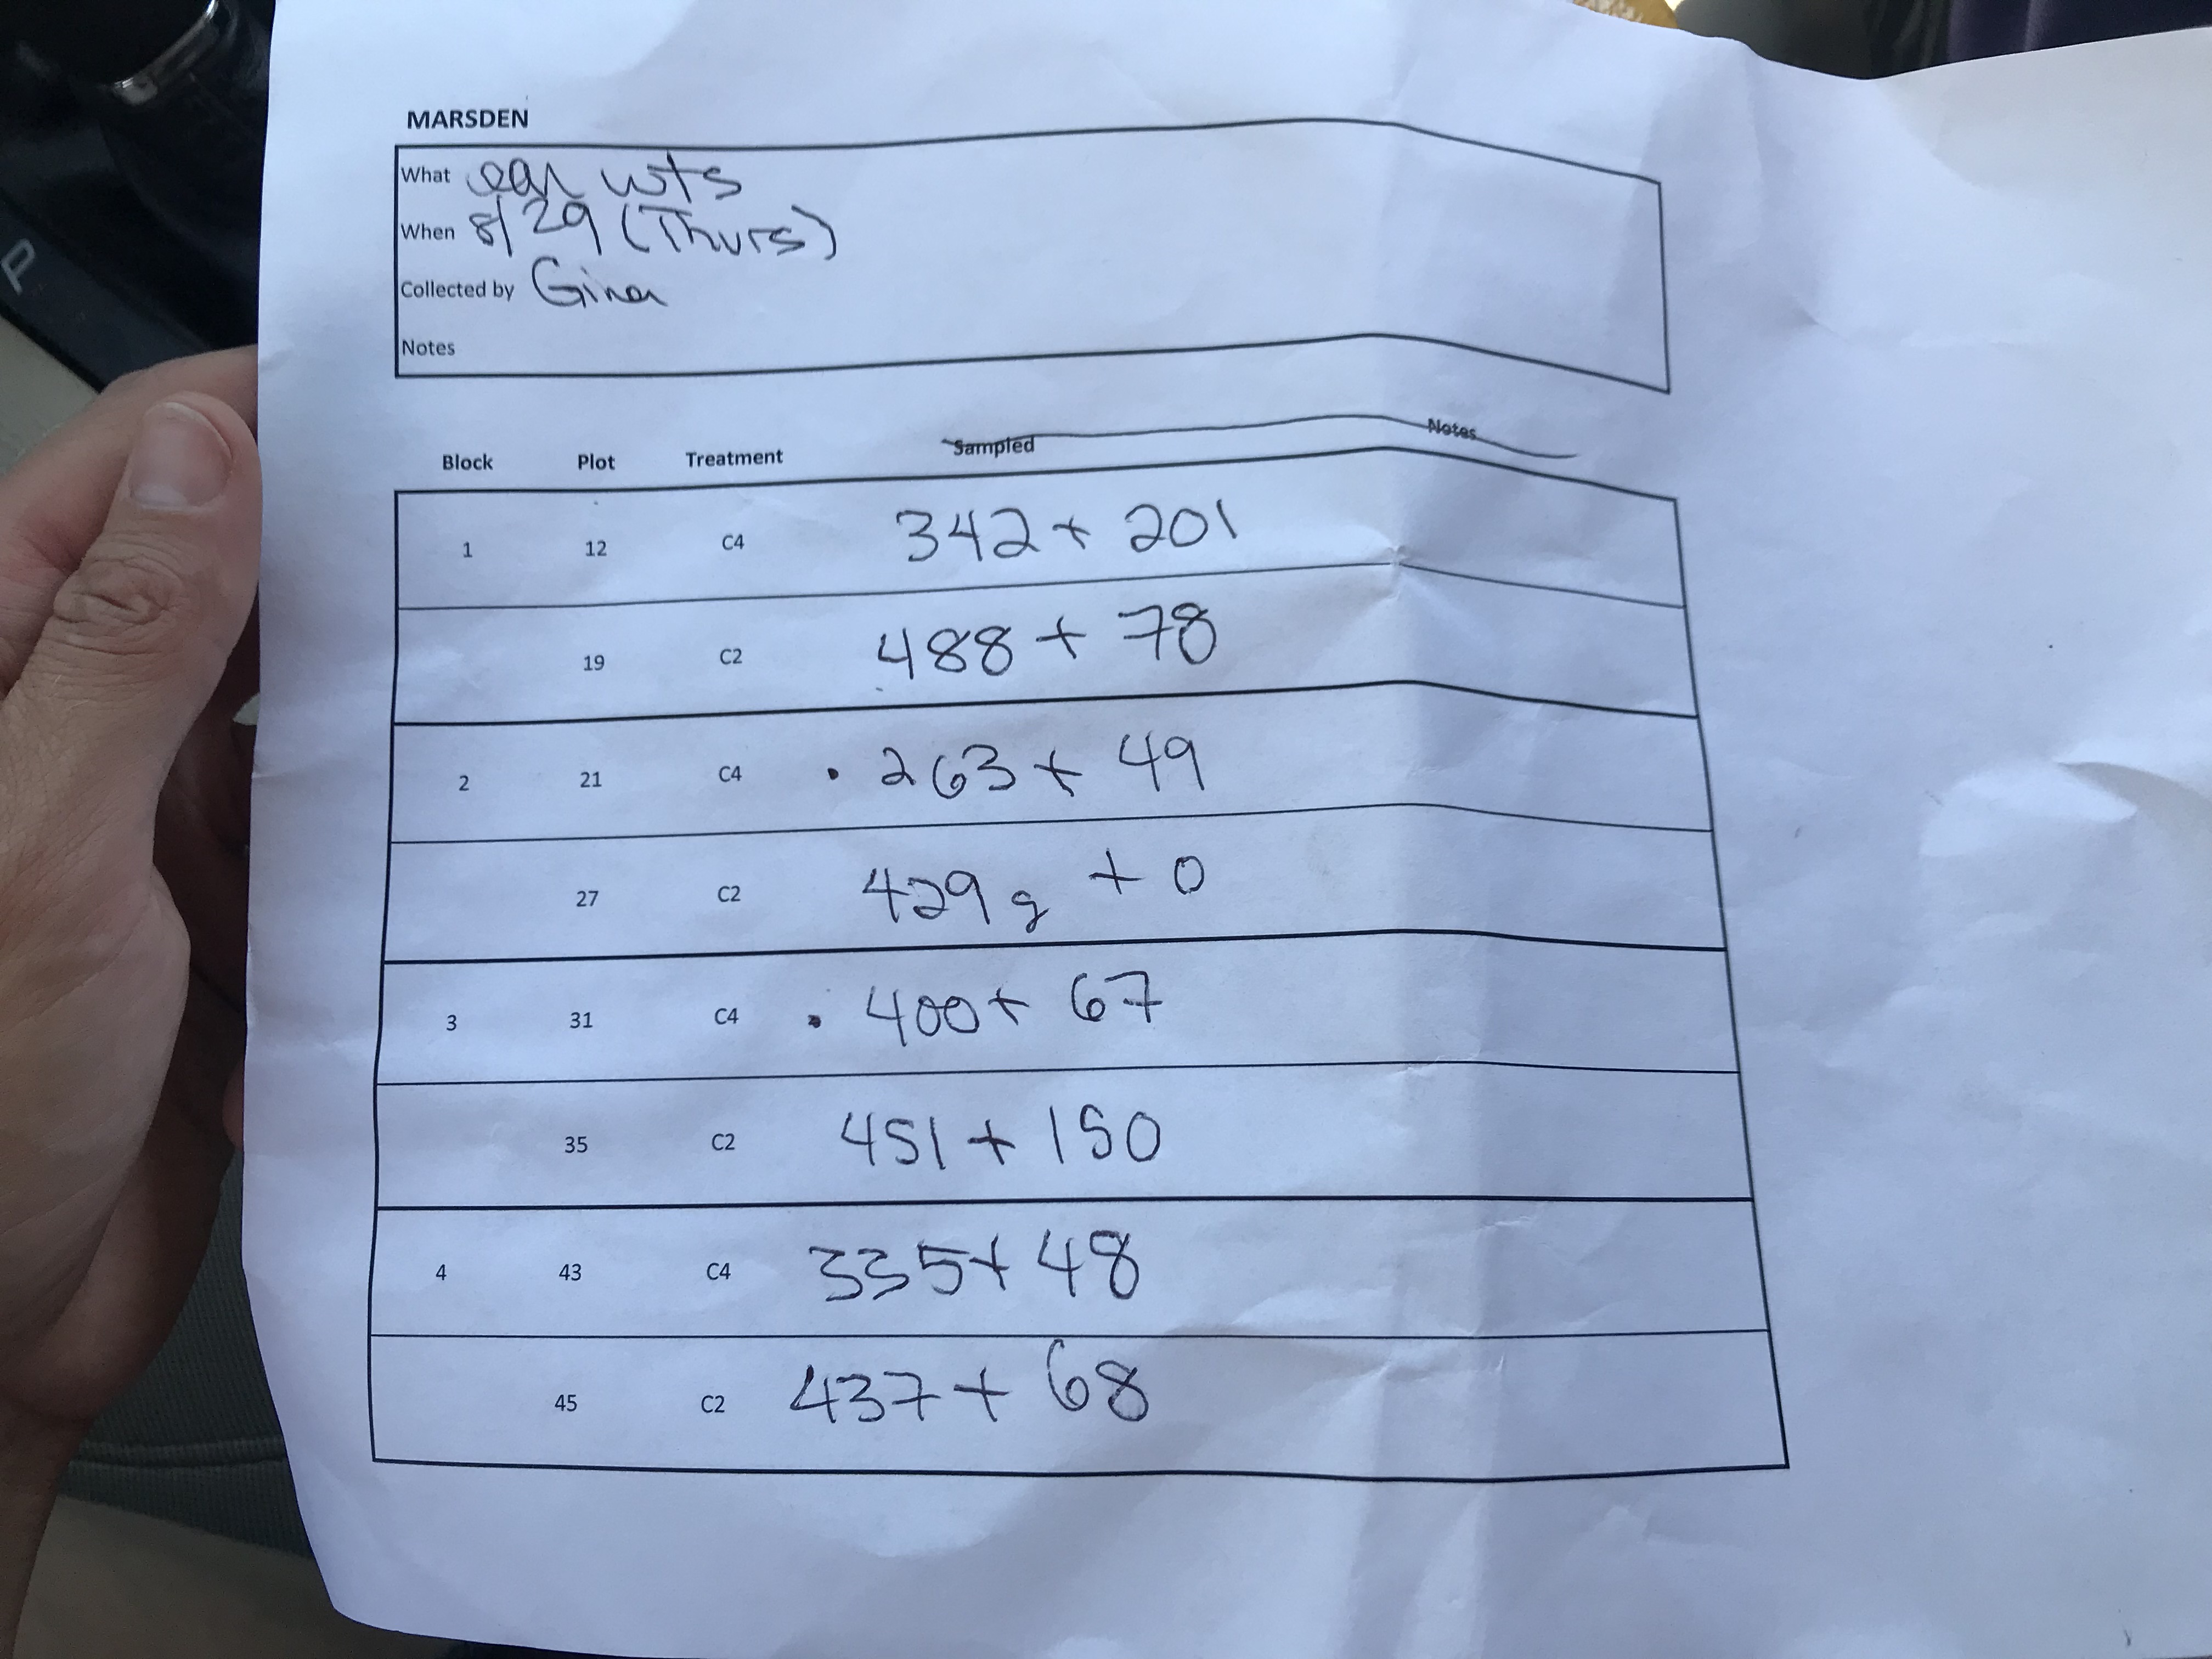 MARSDEN
What ear wts
When 8/29 (Thurs)
Collected by Gina
Notes
Block Plot Treatment Sampled Notes
1 12 C4 342 + 201
19 C2 488 + 78
2 21 C4 • 263 + 49
27 C2 429 g + 0
3 31 C4 • 400 + 67
35 C2 451 + 150
4 43 C4 335 + 48
45 C2 437 + 68
P